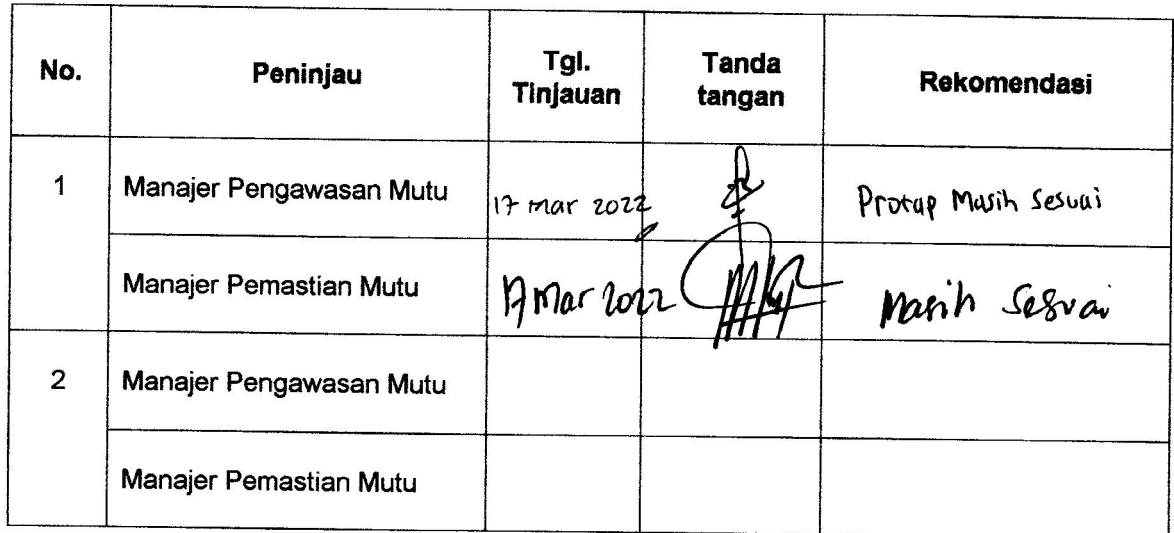 No.
Peninjau
Tgl.
Tinjauan
Tanda
tangan
Rekomendasi
1
Manajer Pengawasan Mutu
17 Mar 2022
Protap Masih Sesuai
Manajer Pemastian Mutu
17 Mar 2022
Masih Sesuai
2
Manajer Pengawasan Mutu
Manajer Pemastian Mutu